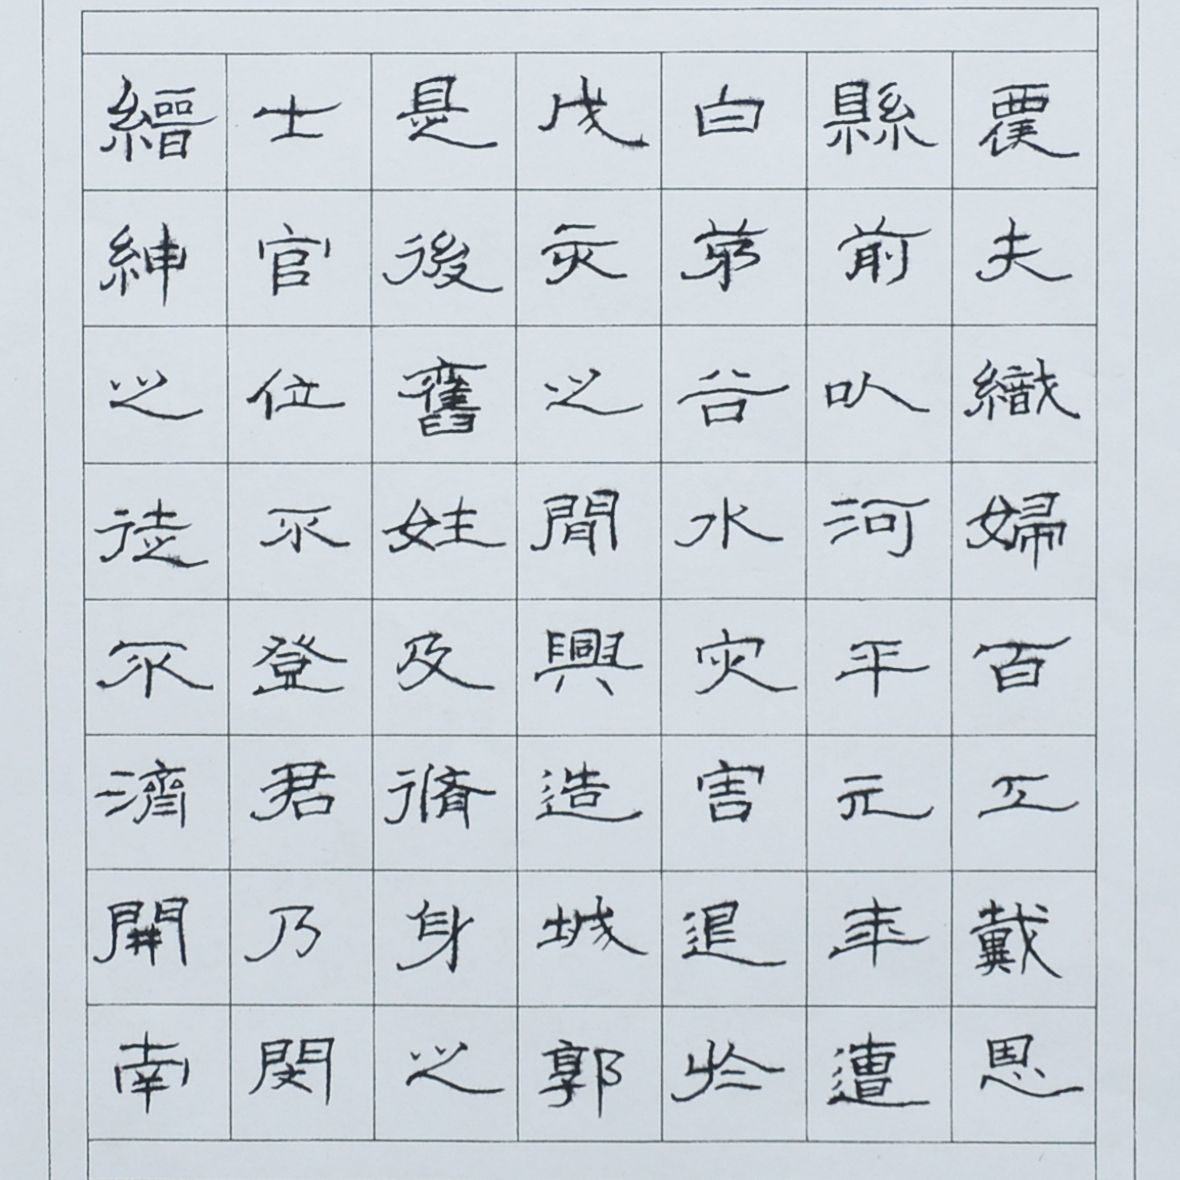 農夫織婦百工戴恩
縣前以河平元年遭
白茅谷水灾害退於
戊亥之間興造城郭
是後舊姓及脩身之
士官位不登君乃閔
縉紳之徒不濟開南